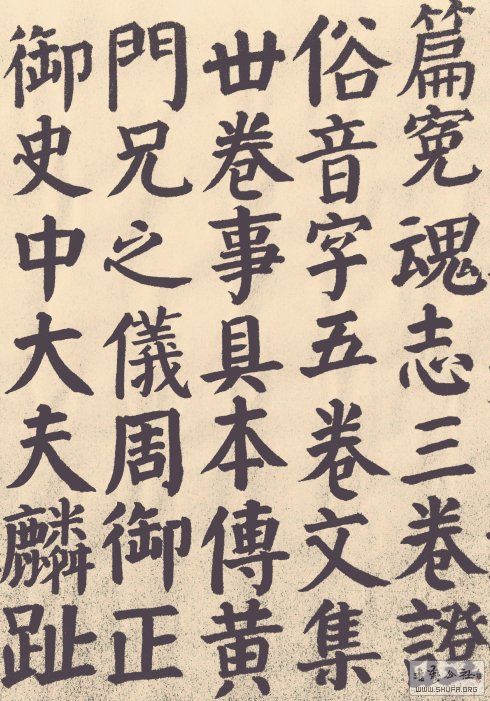 篇寃魂志三卷證
俗音字五卷文集
丗卷事具本傳黃
門兄之儀周御正
御史中大夫麟趾
WWW.SHUFA.ORG